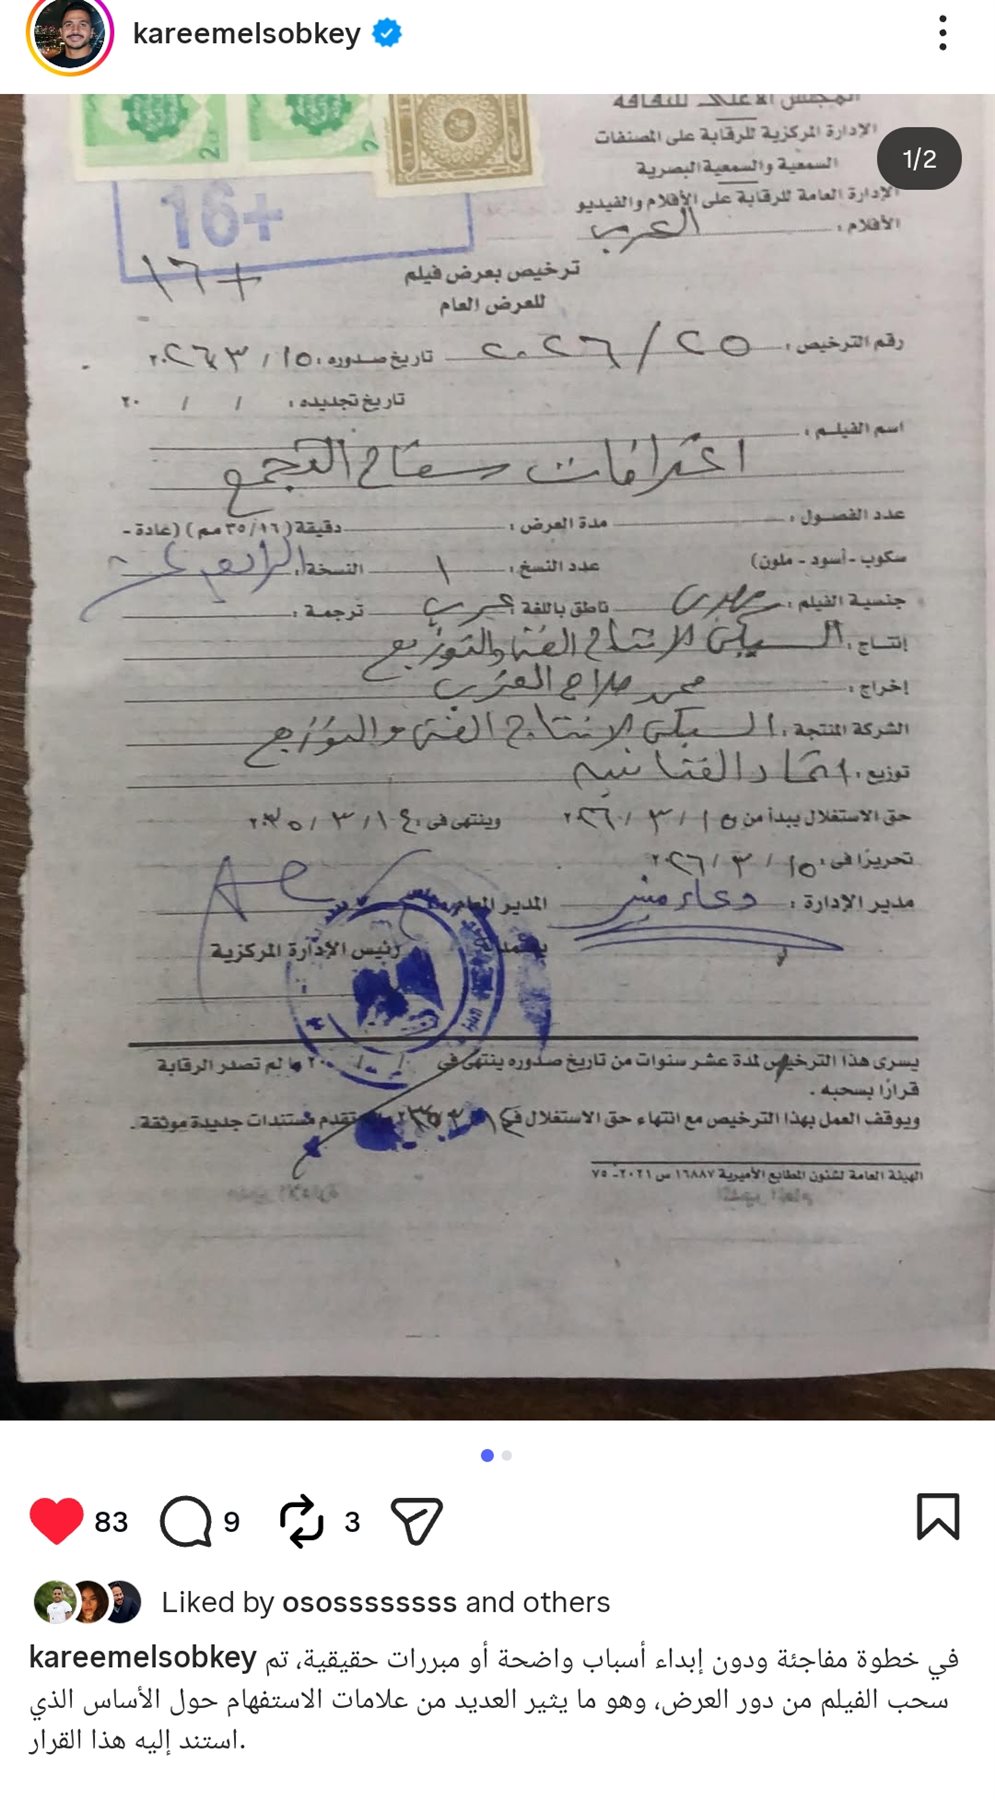 kareemelsobkey
1/2
المجلس الأعلى للثقافة
الإدارة المركزية للرقابة على المصنفات
السمعية والسمعية البصرية
الإدارة العامة للرقابة على الأفلام والفيديو
الأفلام : العربى
16+
+١٦
ترخيص بعرض فيلم
للعرض العام
رقم الترخيص : ٢٥ / ٢٠٢٦ تاريخ صدوره : ١٥ / ٣ / ٢٠٢٦
تاريخ تجديده : / / ٢٠
اسم الفيلم :
اعترافات سفاح التجمع
عدد الفصول : مدة العرض : دقيقة (٣٥/١٦ مم) (عادة -
سكوب - أسود - ملون) عدد النسخ : ١ النسخة :
جنسية الفيلم : مصرى ناطق باللغة : عربى ترجمة :
إنتاج : السبكى للإنتاج الفنى والتوزيع
إخراج : محمد صلاح العزب
الشركة المنتجة : السبكى للإنتاج الفنى والتوزيع
توزيع : اتحاد الفنانين
حق الاستغلال يبدأ من ١٥ / ٣ / ٢٠٢٦ وينتهى فى : ١٤ / ٣ /
تحريرًا فى : ١٥ / ٣ / ٢٠٢٦
مدير الإدارة : دعاء المدير العام
يعتمد رئيس الإدارة المركزية
يسرى هذا الترخيص لمدة عشر سنوات من تاريخ صدوره ينتهى فى / / ٢٠ ما لم تصدر الرقابة
قرارًا بسحبه .
ويوقف العمل بهذا الترخيص مع انتهاء حق الاستغلال فى تقدم مستندات جديدة موثقة .
الهيئة العامة لشئون المطابع الأميرية ١٦٨٨٧ س ٢٠٢١ - ٧٥
83 9 3
Liked by ososssssssss and others
kareemelsobkey في خطوة مفاجئة ودون إبداء أسباب واضحة أو مبررات حقيقية، تم
سحب الفيلم من دور العرض، وهو ما يثير العديد من علامات الاستفهام حول الأساس الذي
استند إليه هذا القرار.